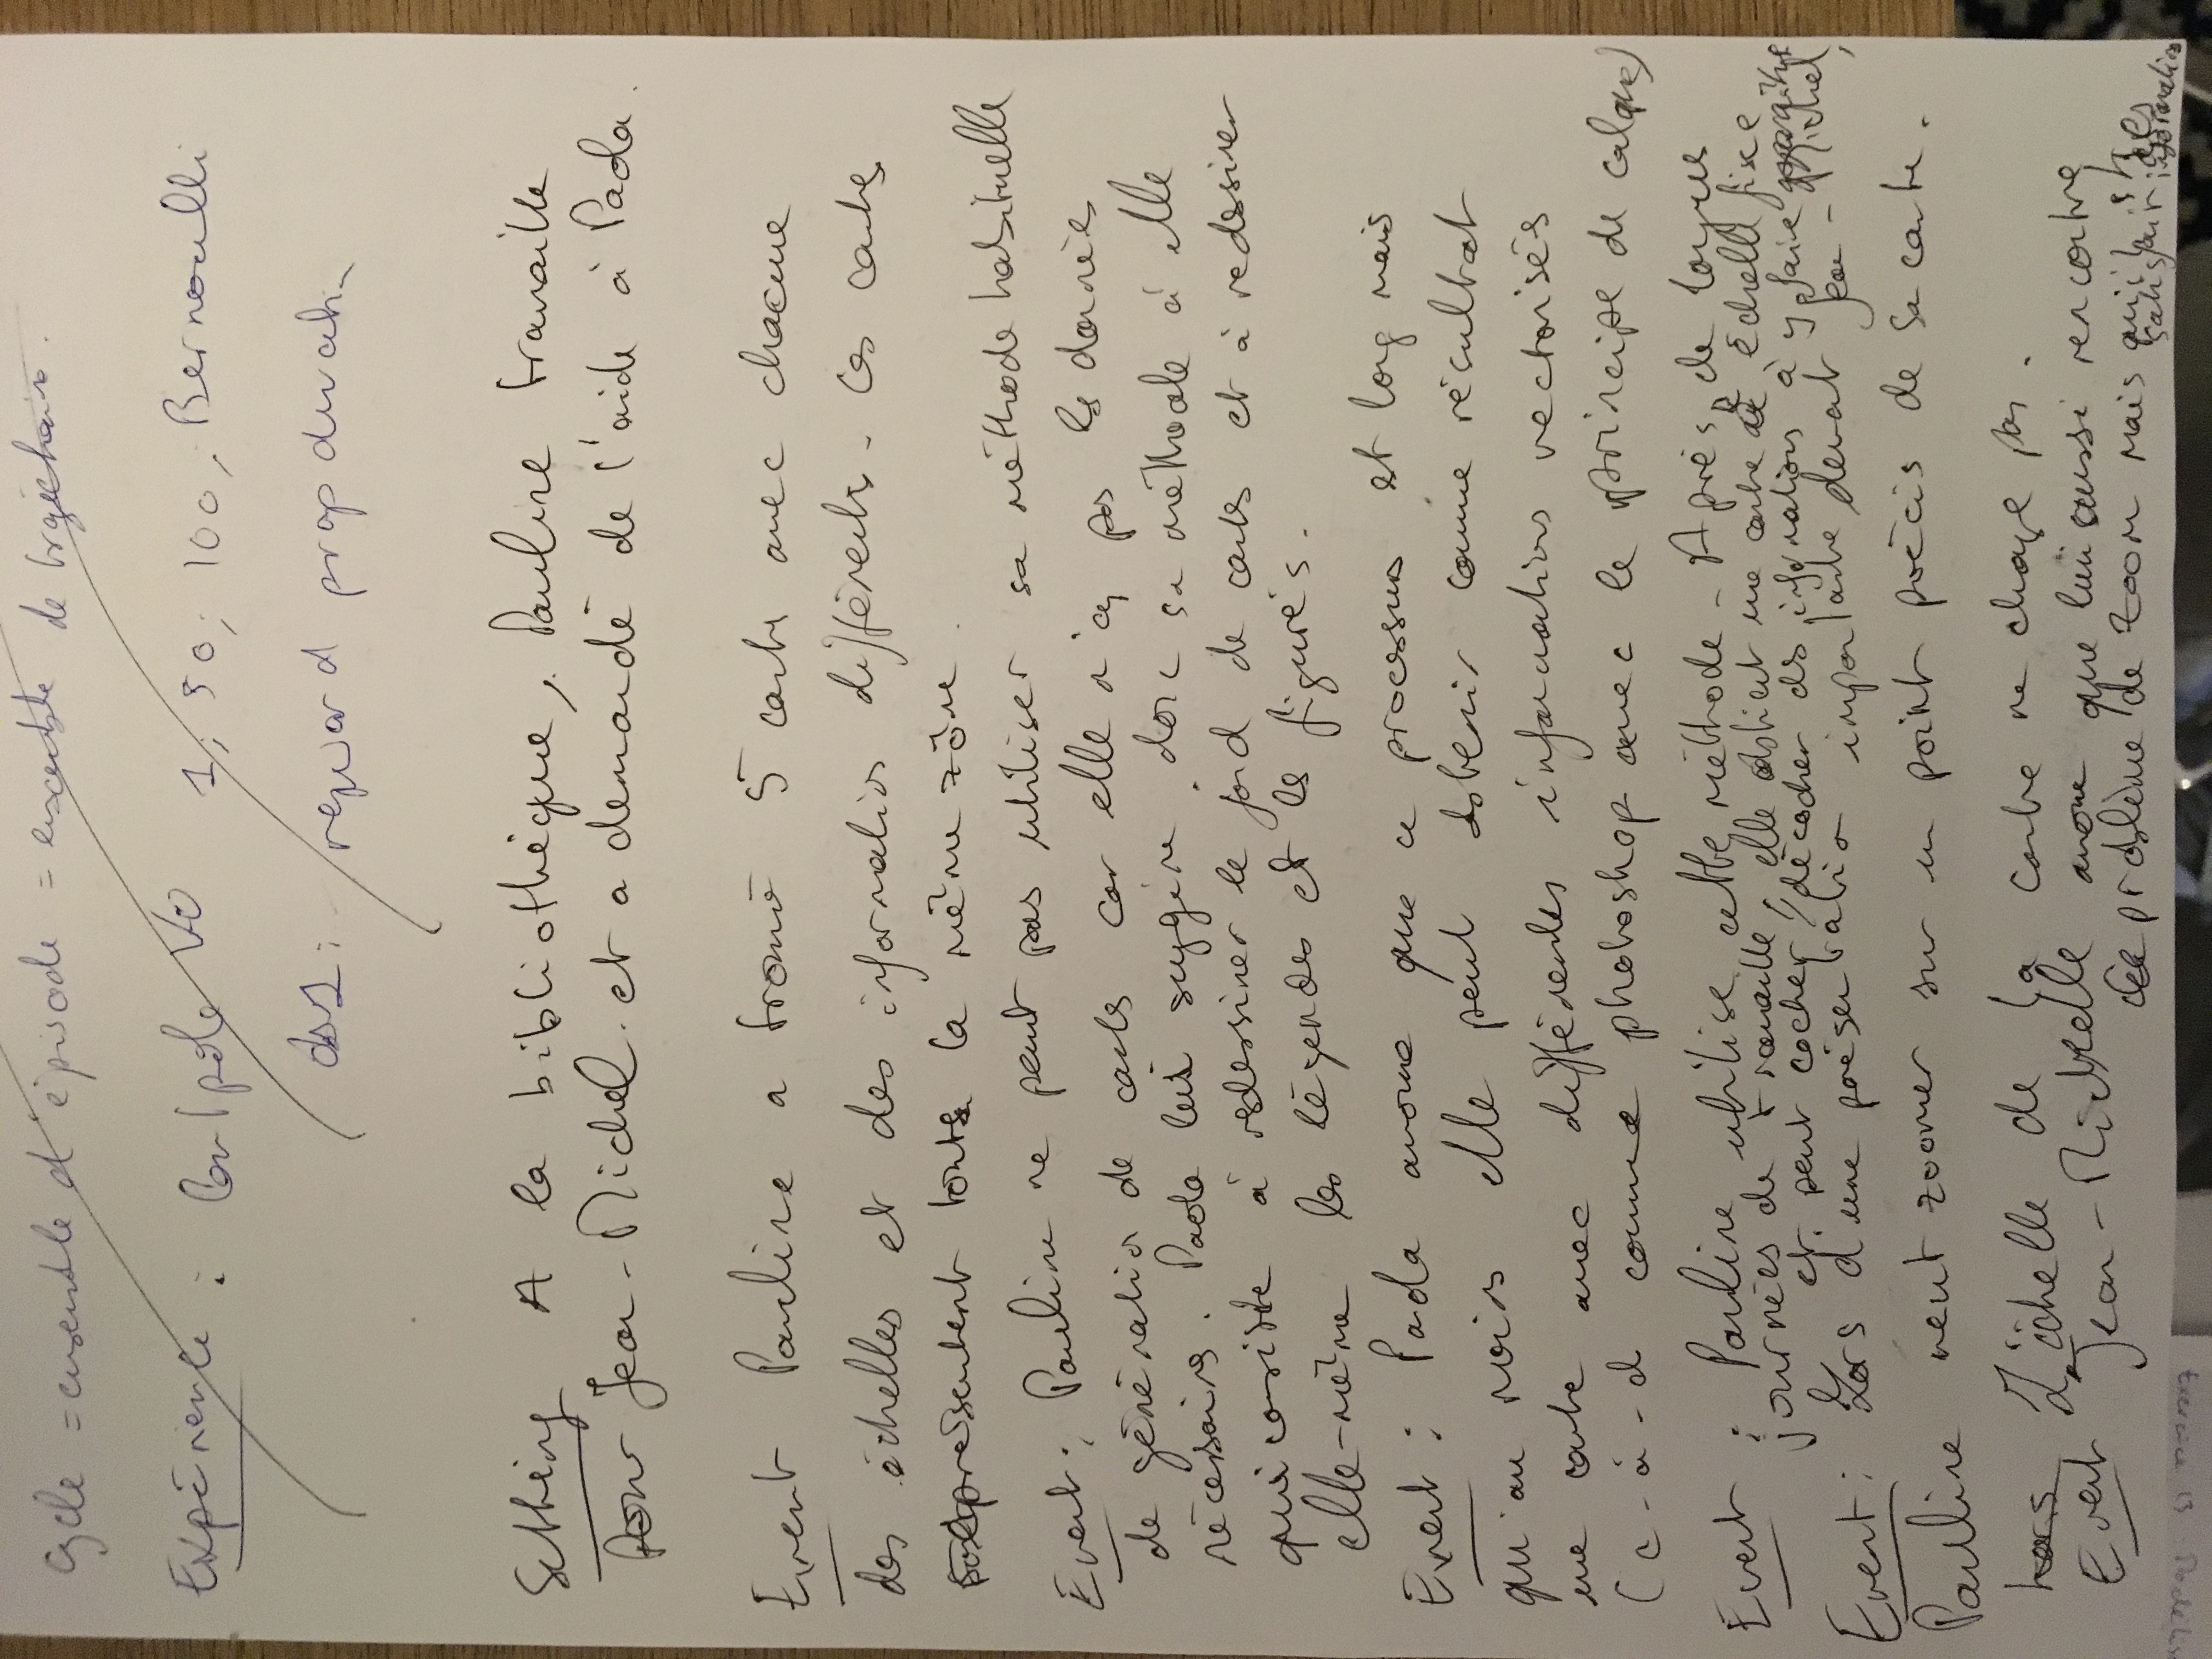 Cycle = ensemble d'épisode = ensemble de trajectoires.
Expérience : Cartpole V0 1; 50; 100; Bernoulli
reward prop
Setting A la bibliothèque, Pauline travaille
pour Jean-Michel. et a demandé de l'aide à Paola.
Event Pauline a trouvé 5 carte avec chacune
des échelles et des informations différents. Ces cartes
représentent toutes la même zône.
Event : Pauline ne peut pas utiliser sa méthode habituelle
de génération de cartes car elle n'a pas les données
nécessaires. Paola lui suggère donc sa méthode à elle
qui consiste à redessiner le fond de cartes et à redessiner
elle-même les légendes et les figurés.
Event : Paola avoue que ce processus est long mais
qu'au moins elle peut obtenir comme résultat
une carte avec différentes informations vectorisés
(c-à-d comme photoshop avec le principe de calque)
Event : Pauline utilise cette méthode. Après de longues
journées de travaille, elle obtient une carte à échelle fixe
et peut cocher/décocher des informations à y faire apparaître
Event : Lors d'une présentation importante devant Jean-Michel,
Pauline veut zoomer sur un point précis de sa carte.
hors L'échelle de la carte ne change pas.
Event Jean-Michelle avoue que lui aussi rencontre
ce problème de zoom mais qu'il
satisfait informations